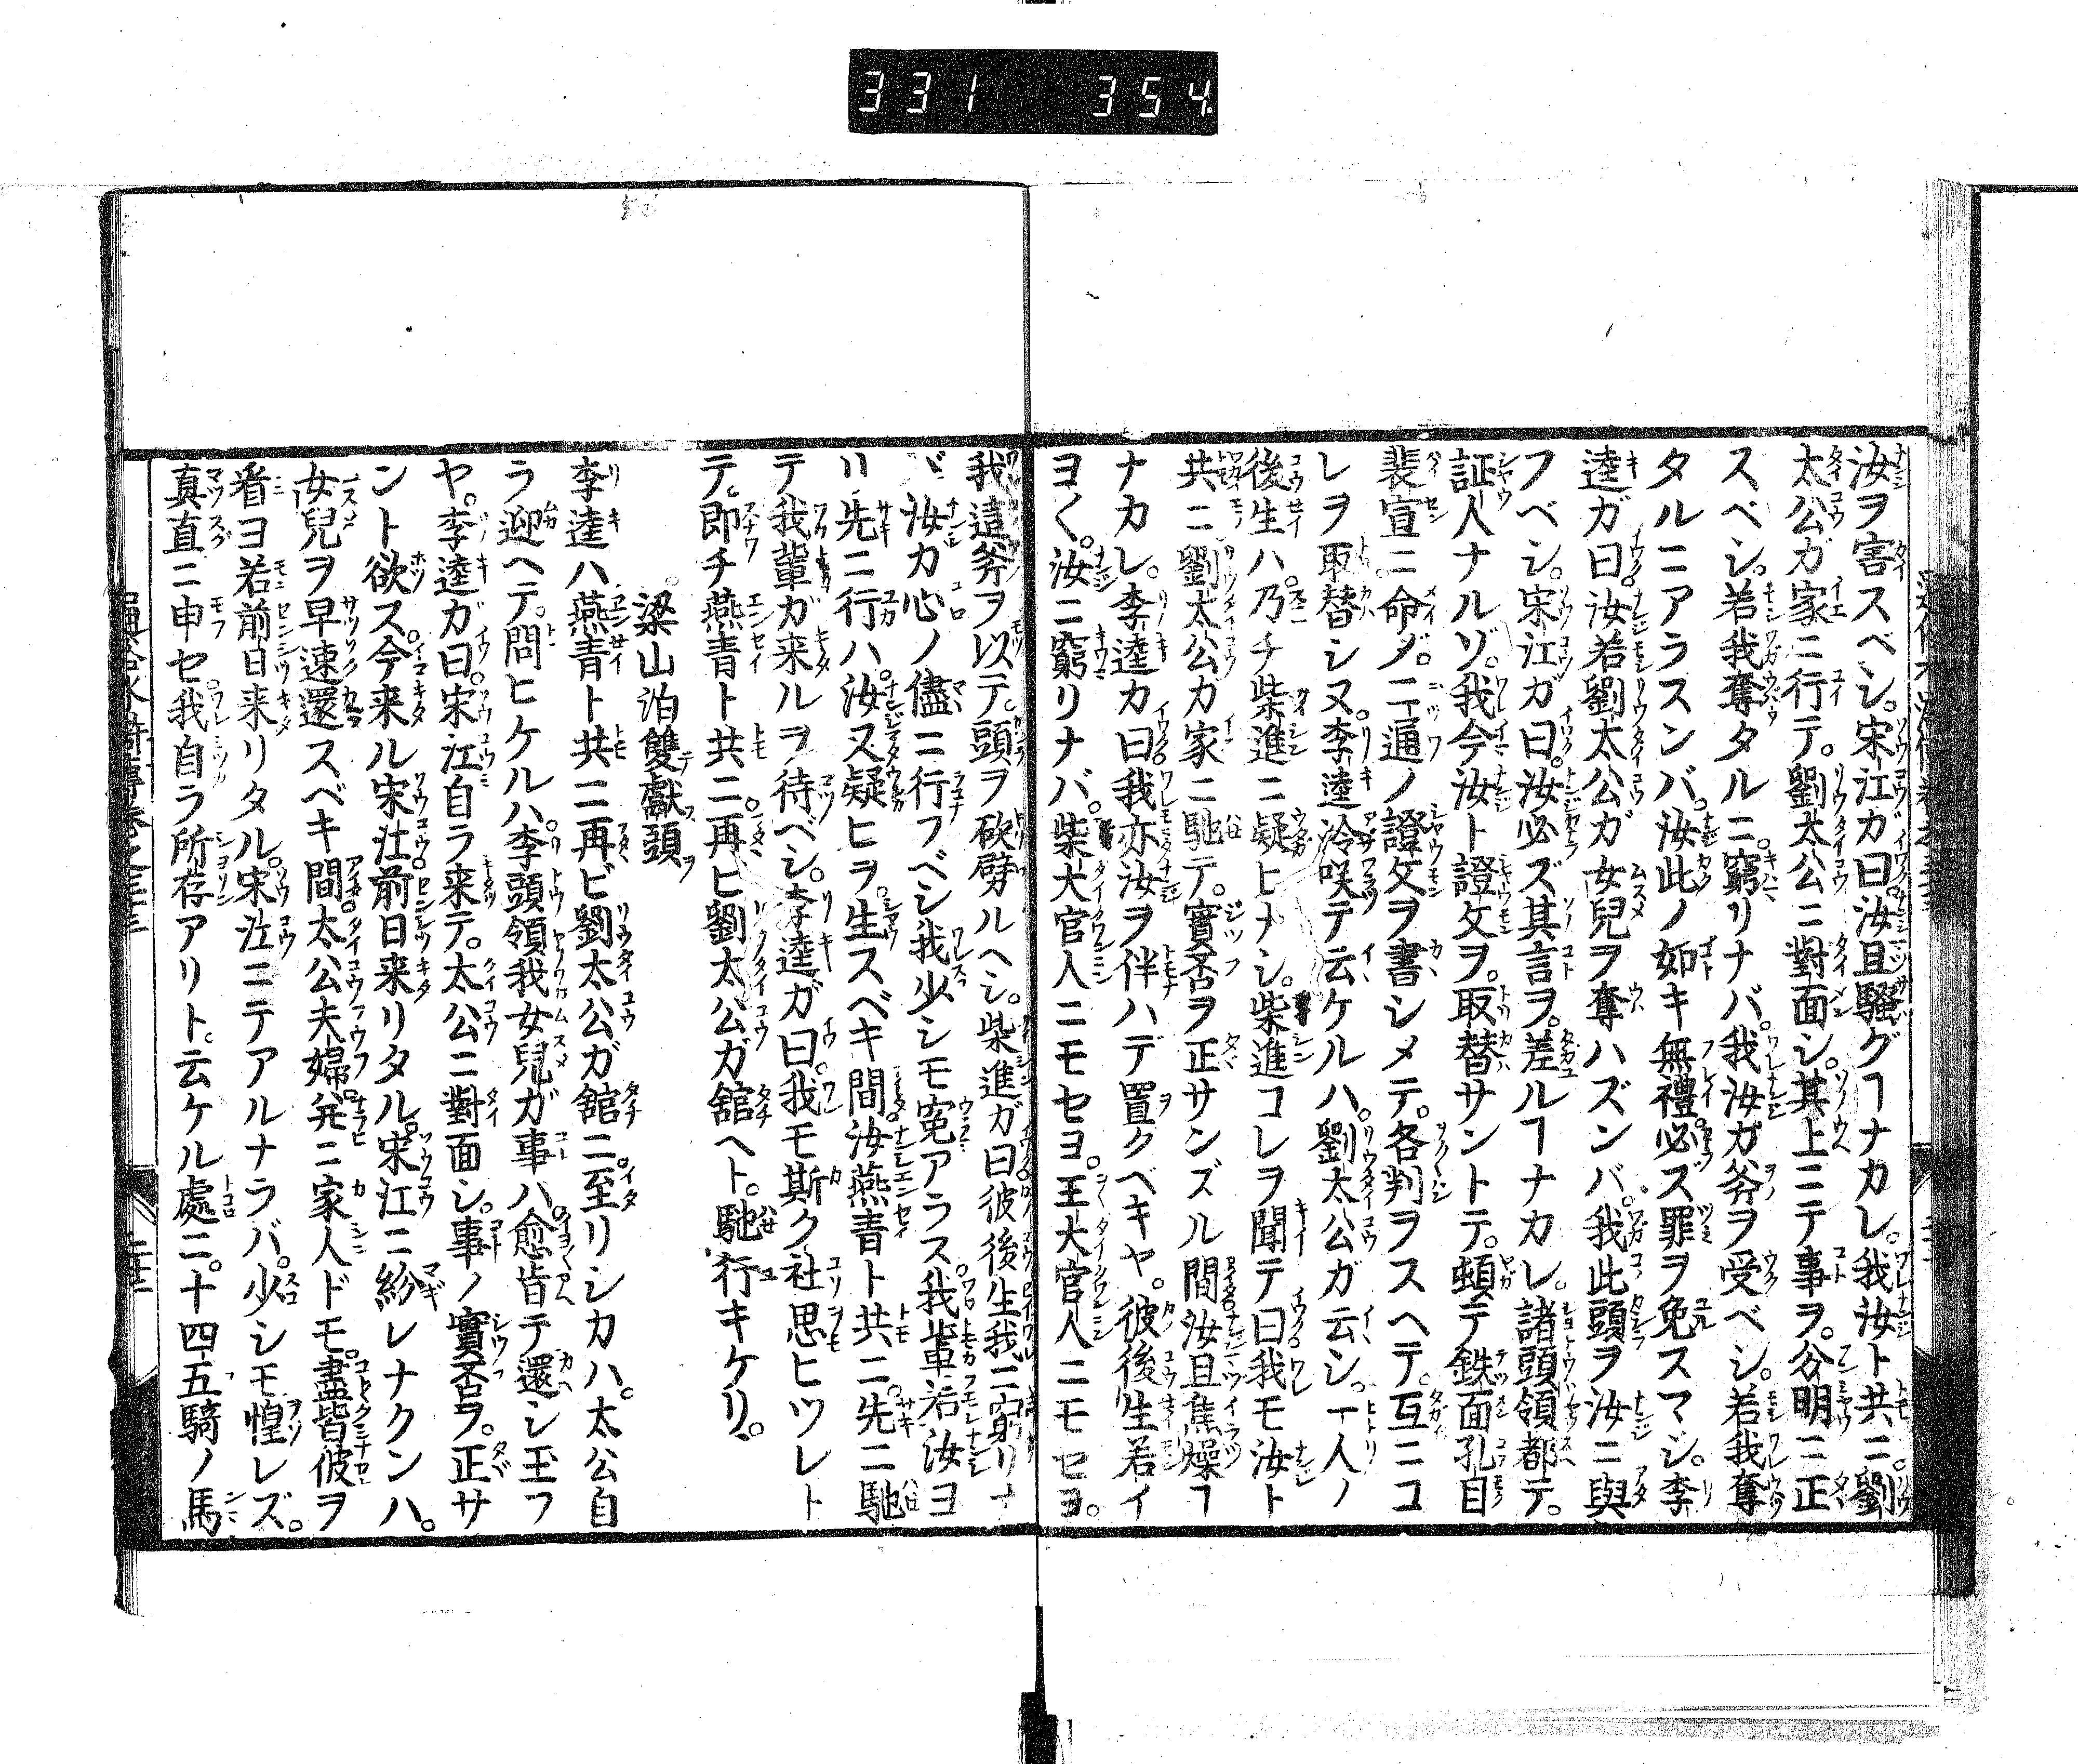 331 354
汝ヲ害スベシ。宋江ガ曰。汝且騒グヿナカレ。我汝ト共ニ。劉
太公ガ家ニ行テ。劉太公ニ對面シ。其上ニテ事ヲ。分明ニ正
スベシ。若我奪タルニ。窮リナバ。我汝ガ斧ヲ受ベシ。若我奪
タルニアラスンバ。汝此ノ如キ無禮。必ズ罪ヲ免スマジ。李
逵ガ曰。汝若劉太公ガ女兒ヲ奪ハズンバ。我此頭ヲ汝ニ與
フベシ。宋江ガ曰。汝必ズ其言ヲ。差ルヿナカレ。諸頭領都テ。
証人ナルゾ。我今汝ト證文ヲ。取替サントテ。頓テ鉄面孔目
裴宣ニ命ジ。二通ノ證文ヲ書シメテ。各判ヲスヘテ。互ニコ
レヲ取替シヌ。李逵冷咲テ云ケルハ。劉太公ガ云シ。一人ノ
後生ハ。乃チ柴進ニ疑ヒナシ。柴進コレヲ聞テ曰。我モ汝ト
共ニ劉太公カ家ニ馳テ。實否ヲ正サンズル間。汝且焦燥ヿ
ナカレ。李逵カ曰。我亦汝ヲ伴ハデ置クベキヤ。彼後生若イ
ヨ〱。汝ニ窮リナバ。柴大官人ニモセヨ。王大官人ニモセヨ。
我這斧ヲ以テ。頭ヲ砍劈ルヘシ。柴進ガ曰彼後生我ニ窮リナ
バ汝カ心ノ儘ニ行フベシ我少シモ寃アラス。我輩若汝ヨ
リ先ニ行ハ。汝又疑ヒヲ。生スベキ間。汝燕青ト共ニ。先ニ馳
テ我輩ガ来ルヲ待ベシ。李逵ガ曰。我モ斯ク社思ヒツレト
テ。即チ燕青ト共ニ。再ヒ劉太公ガ舘ヘト。馳行キケリ。
梁山泊雙獻頭
李逵ハ燕青ト共ニ再ビ劉太公ガ舘ニ。至リシカハ。太公自
ラ迎ヘテ。問ヒケルハ。李頭領我女兒ガ事ハ。愈皆テ還シ玉フ
ヤ。李逵ガ曰。宋江自ラ来テ。太公ニ對面シ。事ノ實否ヲ。正サ
ント欲ス。今来ル宋江。前日来リタル。宋江ニ紛レナクンハ。
女兒ヲ早速還スベキ間。太公夫婦。并ニ家人ドモ。盡皆彼ヲ
看ヨ若前日来リタル。宋江ニテアルナラバ。少シモ惶レズ。
真直ニ申セ。我自ラ所存アリト。云ケル處ニ。十四五騎ノ馬
通俗水滸傳巻之三十三